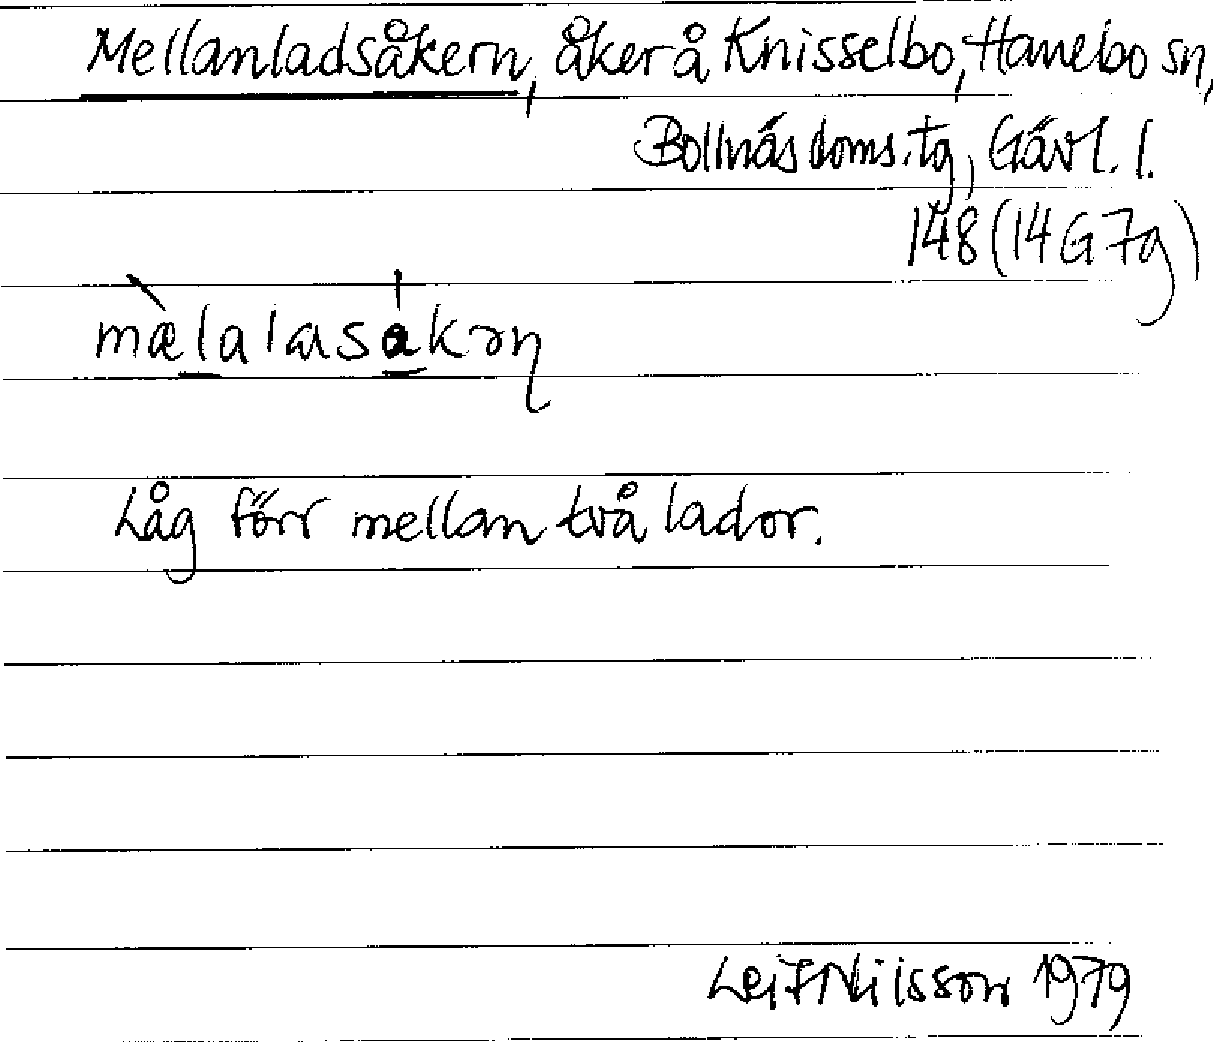 Mellanladsåkern, åker å Knisselbo, Hanebo sn,
Bollnäs doms.tg, Gävl. l.
148 (14G7g)
Låg förr mellan två lador.
Leif Nilsson 1979